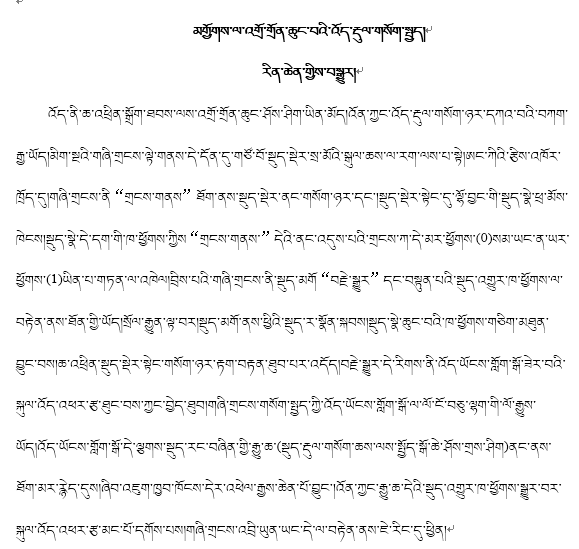 མགྱོགས་ལ་འགྲོ་གྲོན་ཆུང་བའི་འོད་རྡུལ་གསོག་སྤྱད།
རིན་ཆེན་གྱིས་བསྒྱུར།
འོད་ནི་ཆ་འཕྲིན་སྒྲོག་ཐབས་ལས་འགྲོ་གྲོན་ཆུང་ཤོས་ཤིག་ཡིན་མོད།འོན་ཀྱང་འོད་རྡུལ་གསོག་ཉར་དཀའ་བའི་བཀག་
རྒྱ་ཡོད།མིག་སྔའི་གཞི་གྲངས་ལྟེ་གནས་དེ་དོན་དུ་གཙོ་བོ་སྡུད་སྡེར་སྲ་མོའི་སྐུལ་ཆས་ལ་རག་ལས་པ་སྟེ།ཨང་ཀིའི་རྩིས་འཁོར་
ཁྲོད་དུ།གཞི་གྲངས་ནི “གྲངས་གནས” ཐོག་ནས་སྡུད་སྡེར་ནང་གསོག་ཉར་དང་།སྡུད་སྡེར་སྟེང་དུ་ལྷོ་བྱང་གི་སྡུད་སྣེ་ཕྲ་མོས་
ཁེངས།སྡུད་སྣེ་དེ་དག་གི་ཁ་ཕྱོགས་ཀྱིས “གྲངས་གནས་” དེའི་ནང་འདུས་པའི་གྲངས་ཀ་དེ་མར་ཕྱོགས་(0)སམ་ཡང་ན་ཡར་
ཕྱོགས་(1)ཡིན་པ་གཏན་ལ་འཁེལ།བྲིས་པའི་གཞི་གྲངས་ནི་སྡུད་མགོ “བརྗེ་སྒྱུར” དང་བསྟུན་པའི་སྡུད་འགྱུར་ཁ་ཕྱོགས་ལ་
བརྟེན་ནས་ཐོན་གྱི་ཡོད།སྲོལ་རྒྱུན་ལྟ་བར།སྡུད་མགོ་ནས་ཕྱིའི་སྡུད་ར་སྣོན་སྐབས།སྡུད་སྣེ་ཆུང་བའི་ཁ་ཕྱོགས་གཅིག་མཐུན་
བྱུང་བས།ཆ་འཕྲིན་སྡུད་སྡེར་སྟེང་གསོག་ཉར་རྟག་བརྟན་ཐུབ་པར་འདོད།བརྗེ་སྒྱུར་དེ་རིགས་ནི་འོད་ཡོངས་གློག་སྒོ་ཟེར་བའི་
སྐུལ་འོད་འཕར་རྩ་ཐུང་བས་ཀྱང་བྱེད་ཐུབ།གཞི་གྲངས་གསོག་སྤྱད་ཀྱི་འོད་ཡོངས་གློག་སྒོ་ལ་ལོ་ངོ་བཅུ་ལྷག་གི་ལོ་རྒྱུས་
ཡོད།འོད་ཡོངས་གློག་སྒོ་དེ་ལྕགས་སྡུད་རང་བཞིན་གྱི་རྒྱུ་ཆ་(སྡུད་རྡུལ་གསོག་ཆས་ལས་སྤྱོད་སྒོ་ཆེ་ཤོས་གྲས་ཤིག)ནང་ནས་
ཐོག་མར་རྙེད་དུས།ཞིབ་འཇུག་ཁྱབ་ཁོངས་དེར་འཕེལ་རྒྱས་ཆེན་པོ་བྱུང་།འོན་ཀྱང་རྒྱུ་ཆ་དེའི་སྡུད་འགྱུར་ཁ་ཕྱོགས་སྒྱུར་བར་
སྐུལ་འོད་འཕར་རྩ་མང་པོ་དགོས་པས།གཞི་གྲངས་འབྲི་ཡུན་ཡང་དེ་ལ་བརྟེན་ནས་ཇེ་རིང་དུ་ཕྱིན།